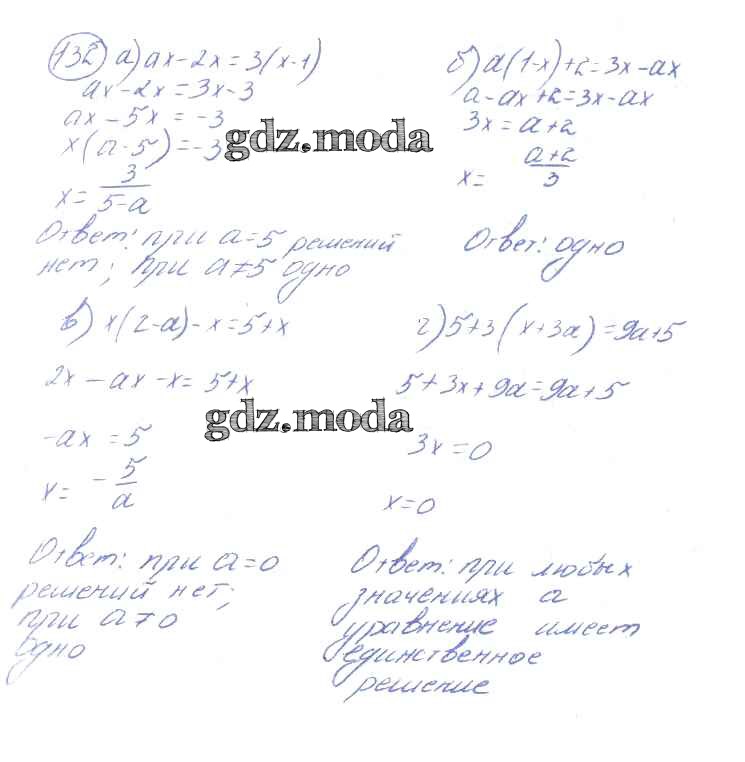 132 а) ax - 2x = 3(x-1)
ax - 2x = 3x - 3
ax - 5x = -3
x(a-5) = -3
x = 3/(5-a)
Ответ: при a=5 решений
нет; при a≠5 одно
б) a(1-x)+2=3x-ax
a-ax+2=3x-ax
3x = a+2
x = (a+2)/3
Ответ: одно
gdz.moda
в) x(2-a)-x=5+x
2x - ax - x = 5+x
-ax = 5
x = -5/a
Ответ: при a=0
решений нет;
при a≠0
одно
г) 5+3(x+3a)=9a+5
5+3x+9a=9a+5
3x=0
x=0
Ответ: при любых
значениях a
уравнение имеет
единственное
решение
gdz.moda